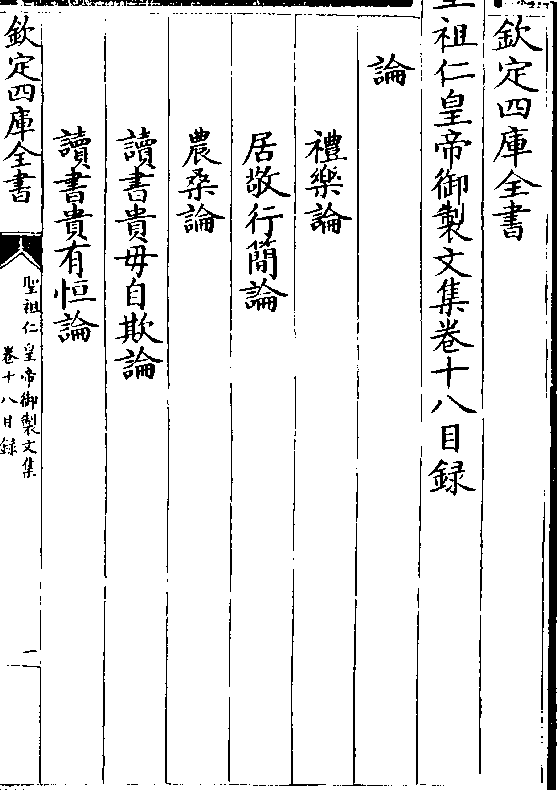 欽定四庫全書
聖祖仁皇帝御製文集卷十八目録
論
禮樂論
居敬行簡論
農桑論
讀書貴毋自欺論
讀書貴有恒論
欽定四庫全書
聖祖仁皇帝御製文集
卷十八目録
一